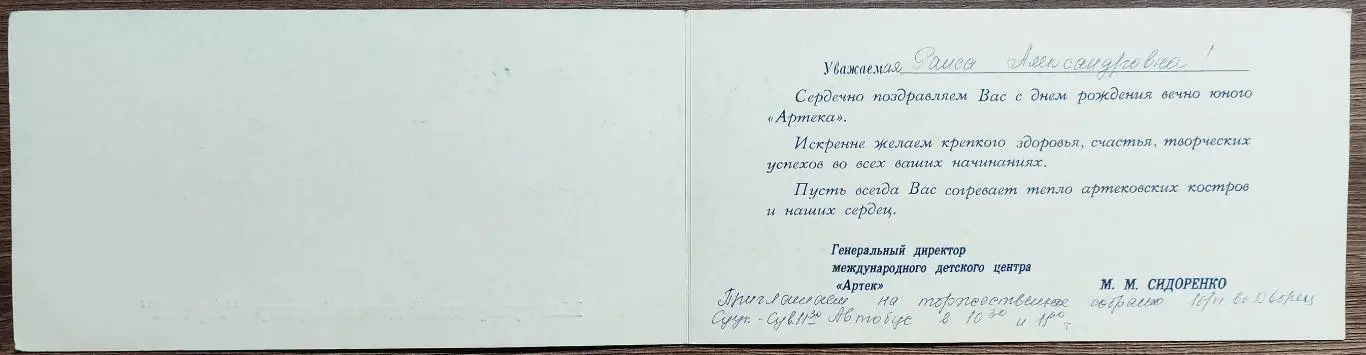 Уважаемая Раиса Александровна!
Сердечно поздравляем Вас с днем рождения вечно юного
«Артека».
Искренне желаем крепкого здоровья, счастья, творческих
успехов во всех ваших начинаниях.
Пусть всегда Вас согревает тепло артековских костров
и наших сердец.
Генеральный директор
международного детского центра
«Артек» М. М. СИДОРЕНКО
Приглашаем на торжественное собрание во Дворец
Автобус в 10 30 и 11 00